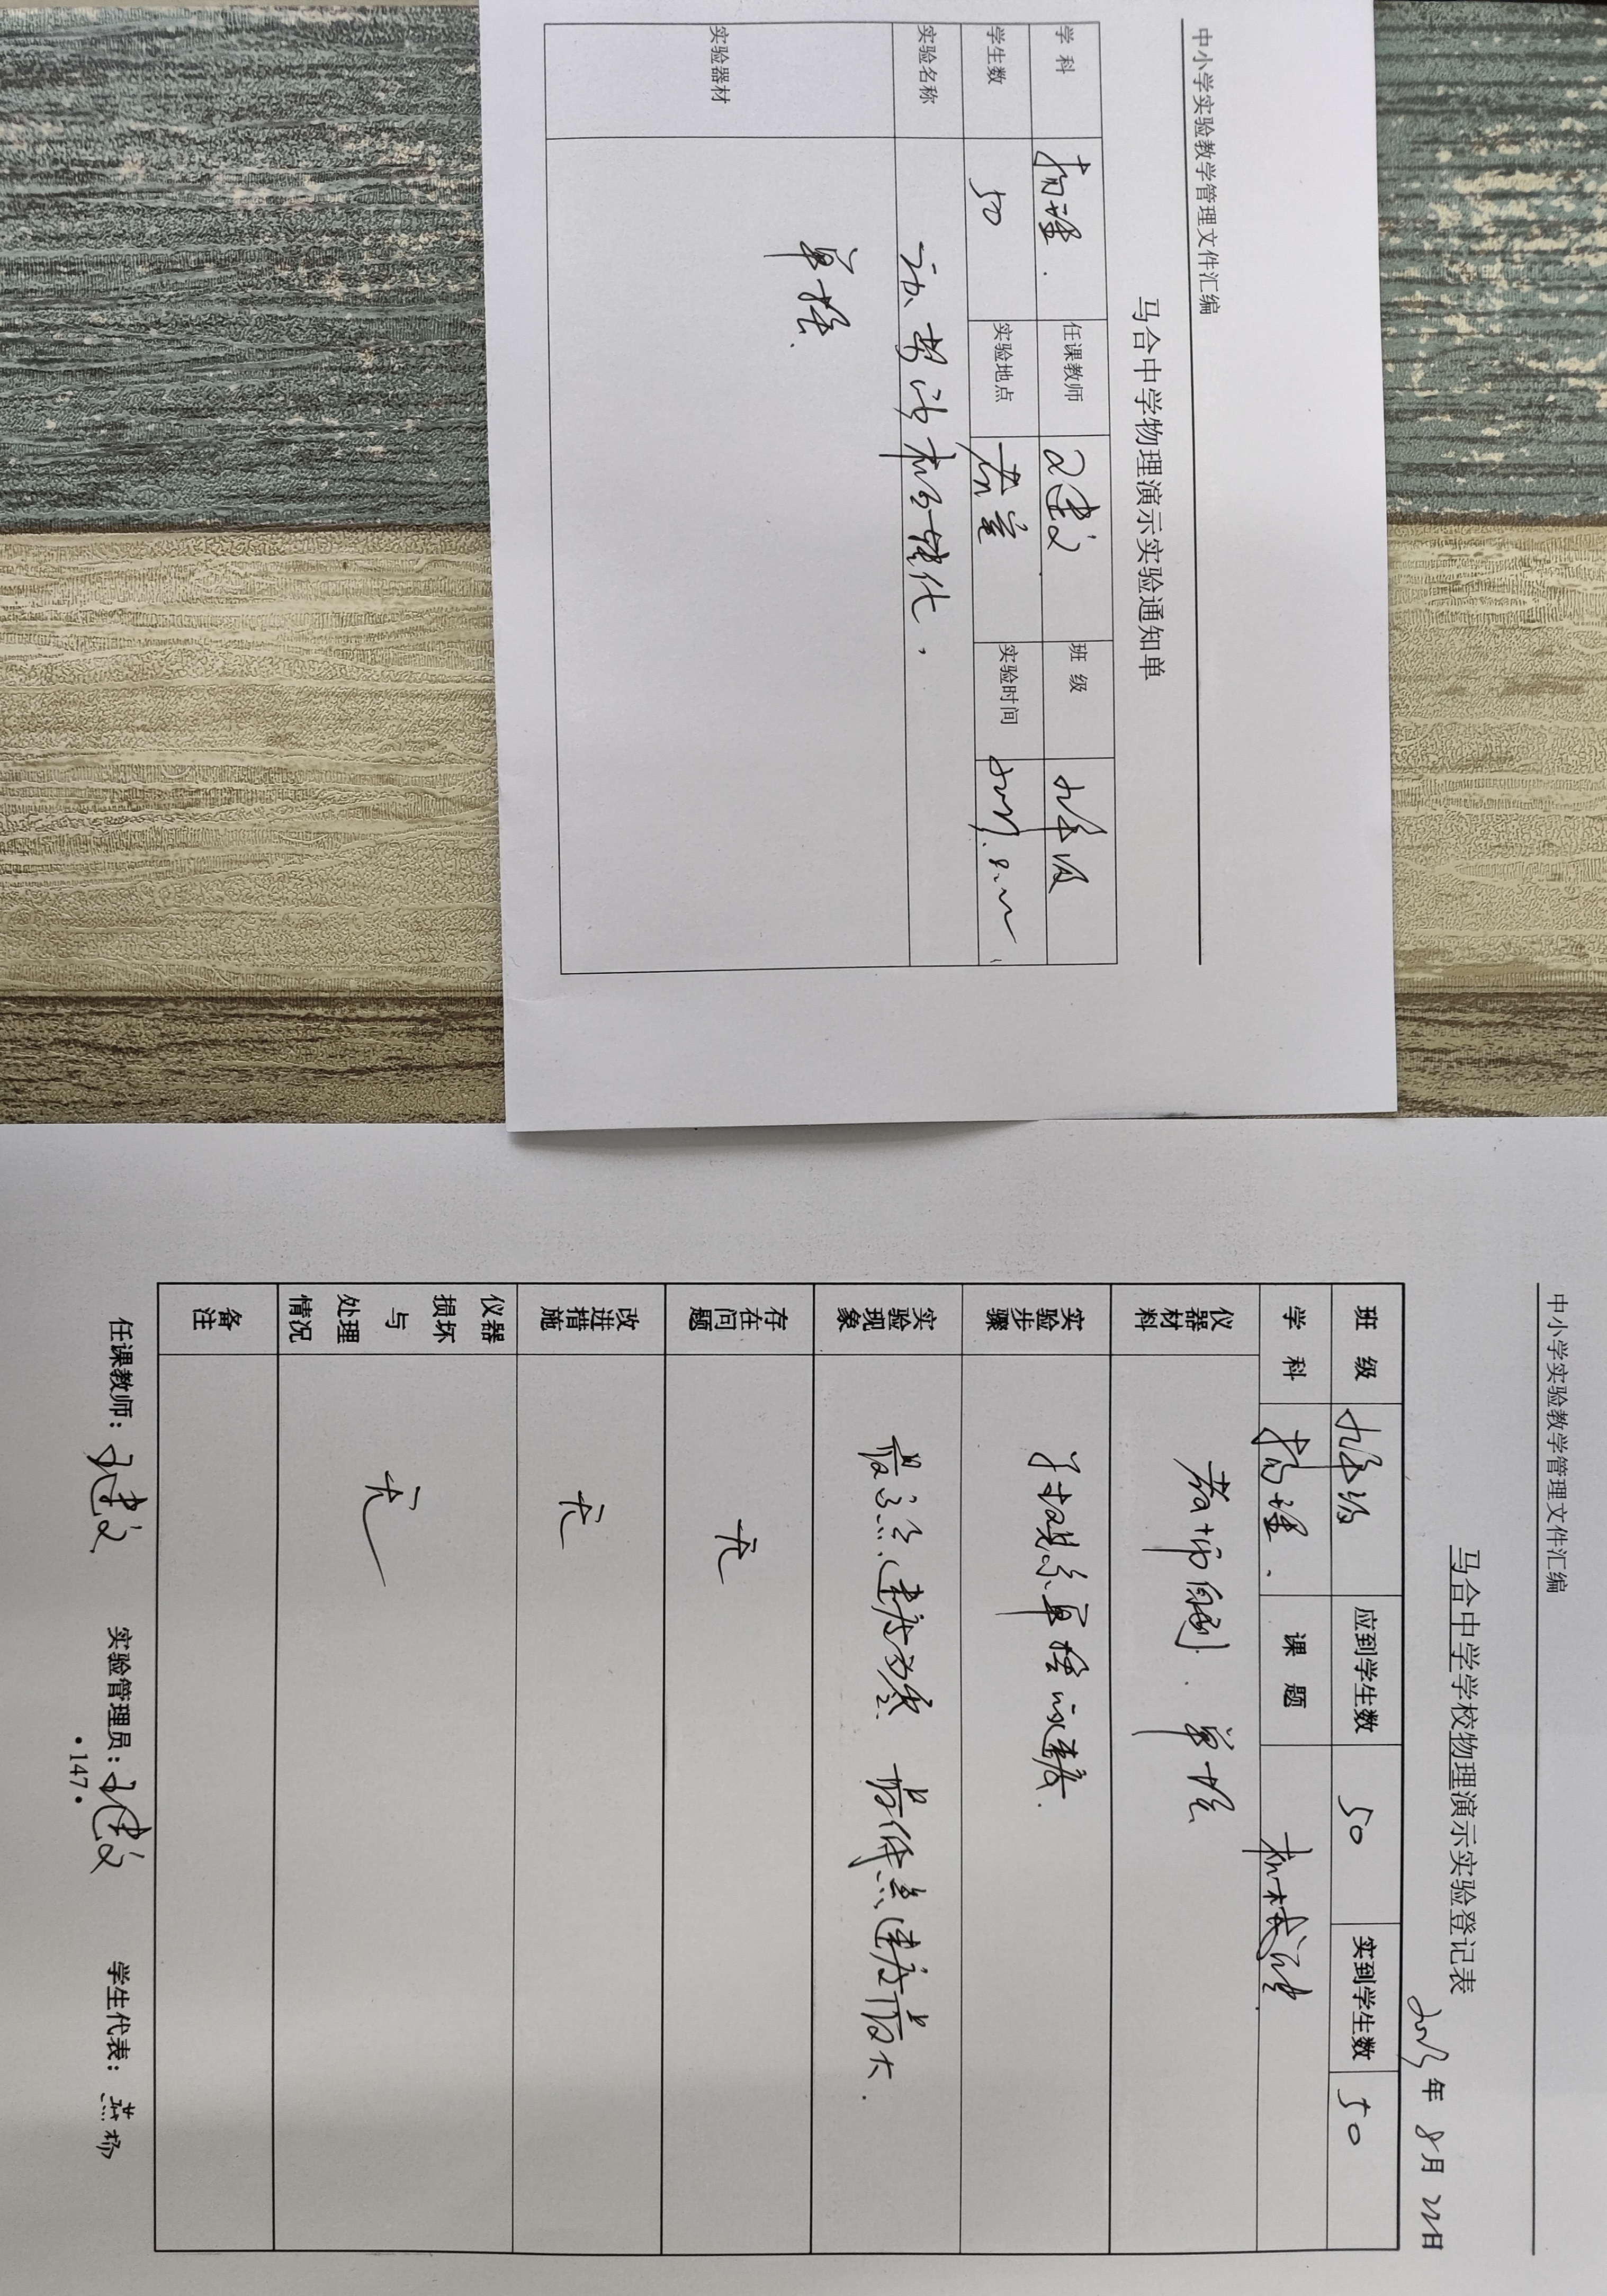 中小学实验教学管理文件汇编
马合中学物理演示实验通知单
学 科 物理. 任课教师 班 级 九年级
学生数 50 实验地点 教室 实验时间
实验名称 动势能相互转化.
实验器材 单摆.
中小学实验教学管理文件汇编
马合中学学校物理演示实验登记表
年 8月 22日
班 级 九年级 应到学生数 50 实到学生数 50
学 科 物理. 课 题 机械能
仪器材料 教师自制. 单摆
实验步骤 单摆 速度.
实验现象 最高点速度为零 最低点速度最大.
存在问题 无
改进措施 无
仪器损坏与处理情况 无
备注
任课教师: 实验管理员: 学生代表: 燕杨
•147•